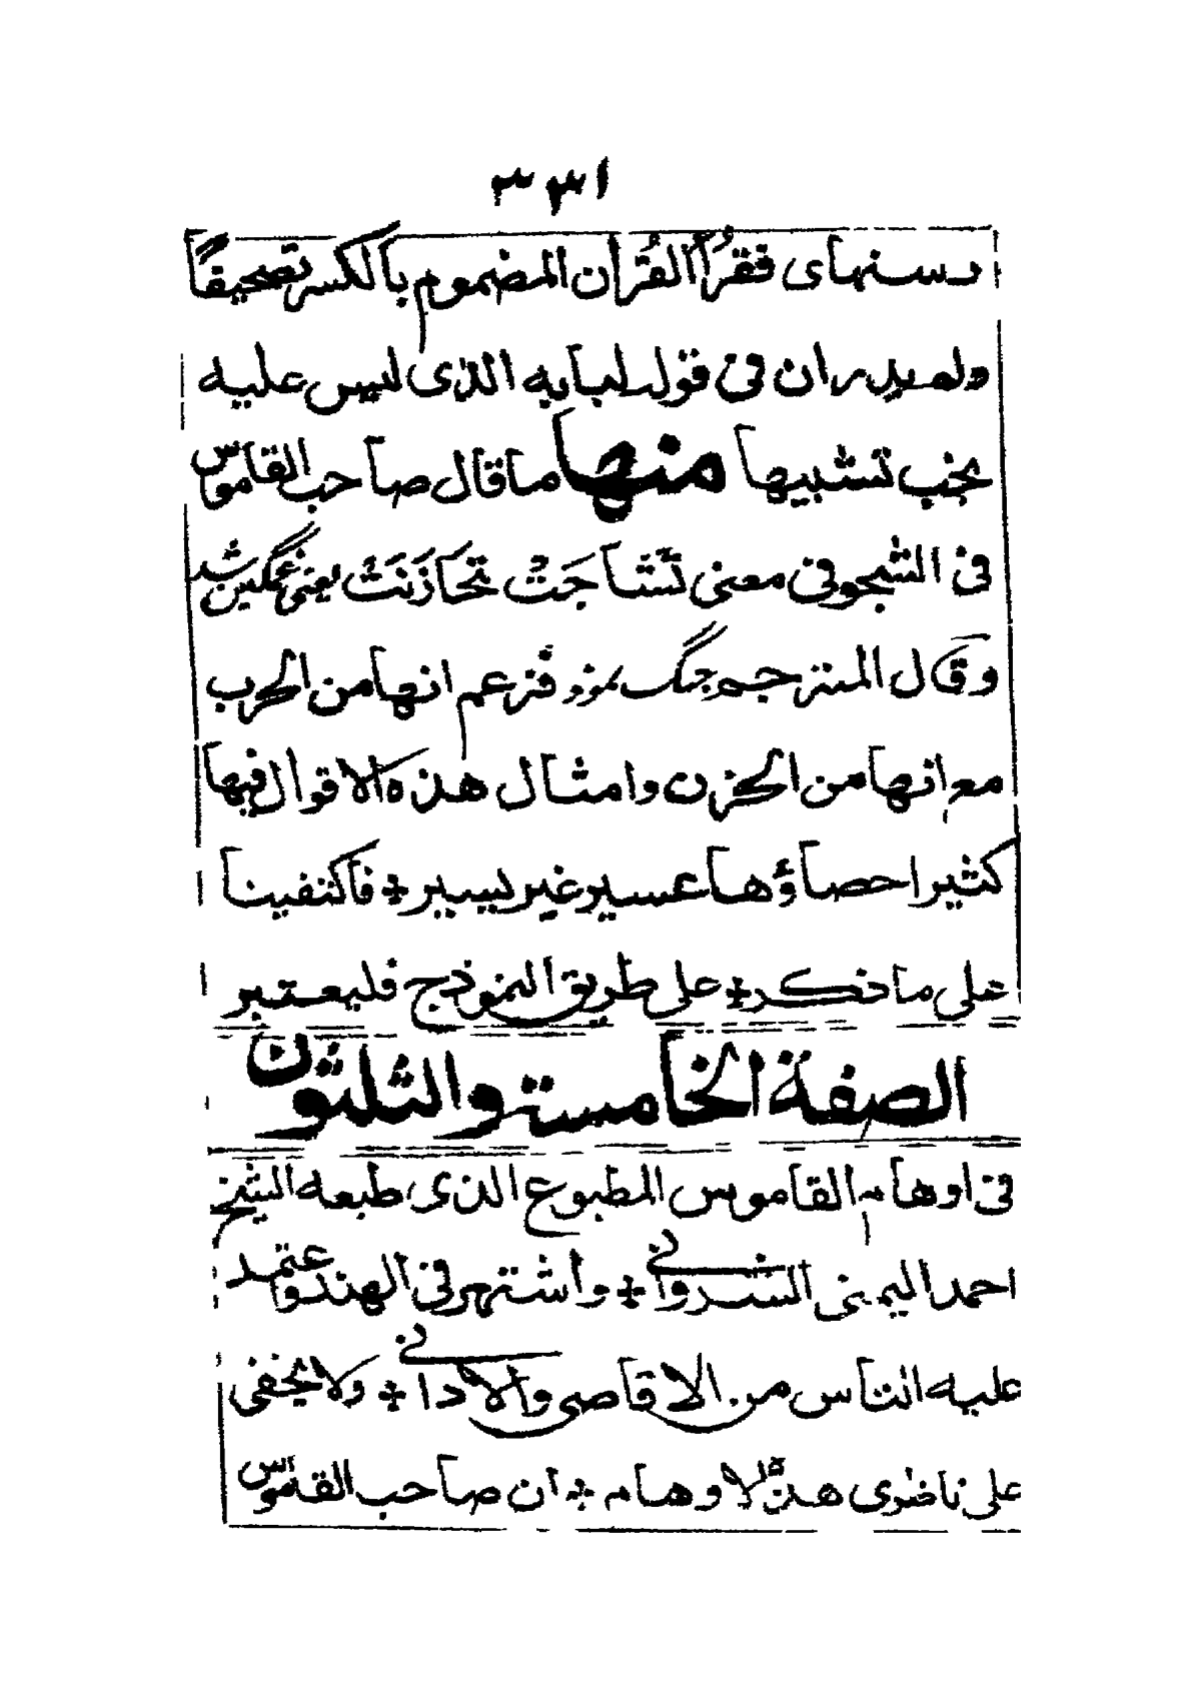 ٣٣١
رسنهای فقرُأ القُرأن المضموم بالكسر تصحيفًا
ولم يدر ان فی قوله لبابه الذی لیس علیه
تشبيها منها ما قال صاحب القاموس
فی الشجو فی معنی تَشَاجَتْ تَحَازَنَتْ یعنی غمگین شد
وقال المترجم جنگ نمود فزعم انها من الحرب
مع انها من الحزن وامثال هذه الاقوال فیها
کثیر احصاؤها عسیر غیر یسیر + فاکتفینا
علی ما ذکر + علی طریق النموذج فلیعتبر
الصفة الخامسة والثلثون
فی اوهام القاموس المطبوع الذی طبعه الشیخ
احمد الیمنی الشروانی + واشتهر فی الهند واعتمد
علیه الناس من الاقاصی والادانی + ولا یخفی
علی ناظری هذه الاوهام + ان صاحب القاموس